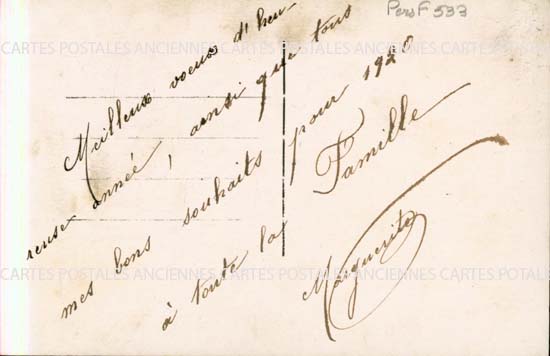 Pers F 533
Meilleurs voeux d'heu-
reuse année, ainsi que tous
mes bons souhaits pour 1920
à toute la Famille
Marguerite
CARTES POSTALES ANCIENNES CARTES POSTALES ANCIENNES CARTES POSTALES
CARTES POSTALES ANCIENNES CARTES POSTALES ANCIENNES CARTES POSTALES